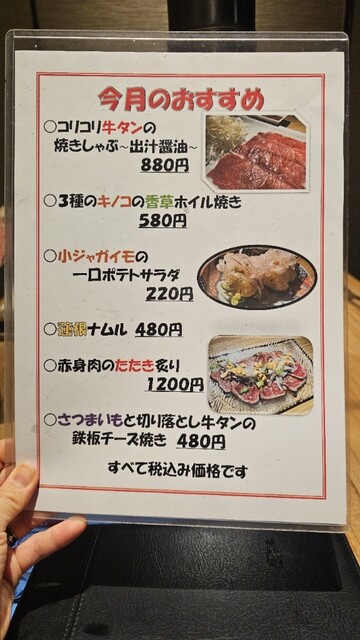 今月のおすすめ
○コリコリ牛タンの
焼きしゃぶ~出汁醤油~
880円
○3種のキノコの香草ホイル焼き
580円
○小ジャガイモの
一口ポテトサラダ
220円
○蓮根ナムル 480円
○赤身肉のたたき炙り
1200円
○さつまいもと切り落とし牛タンの
鉄板チーズ焼き 480円
すべて税込み価格です